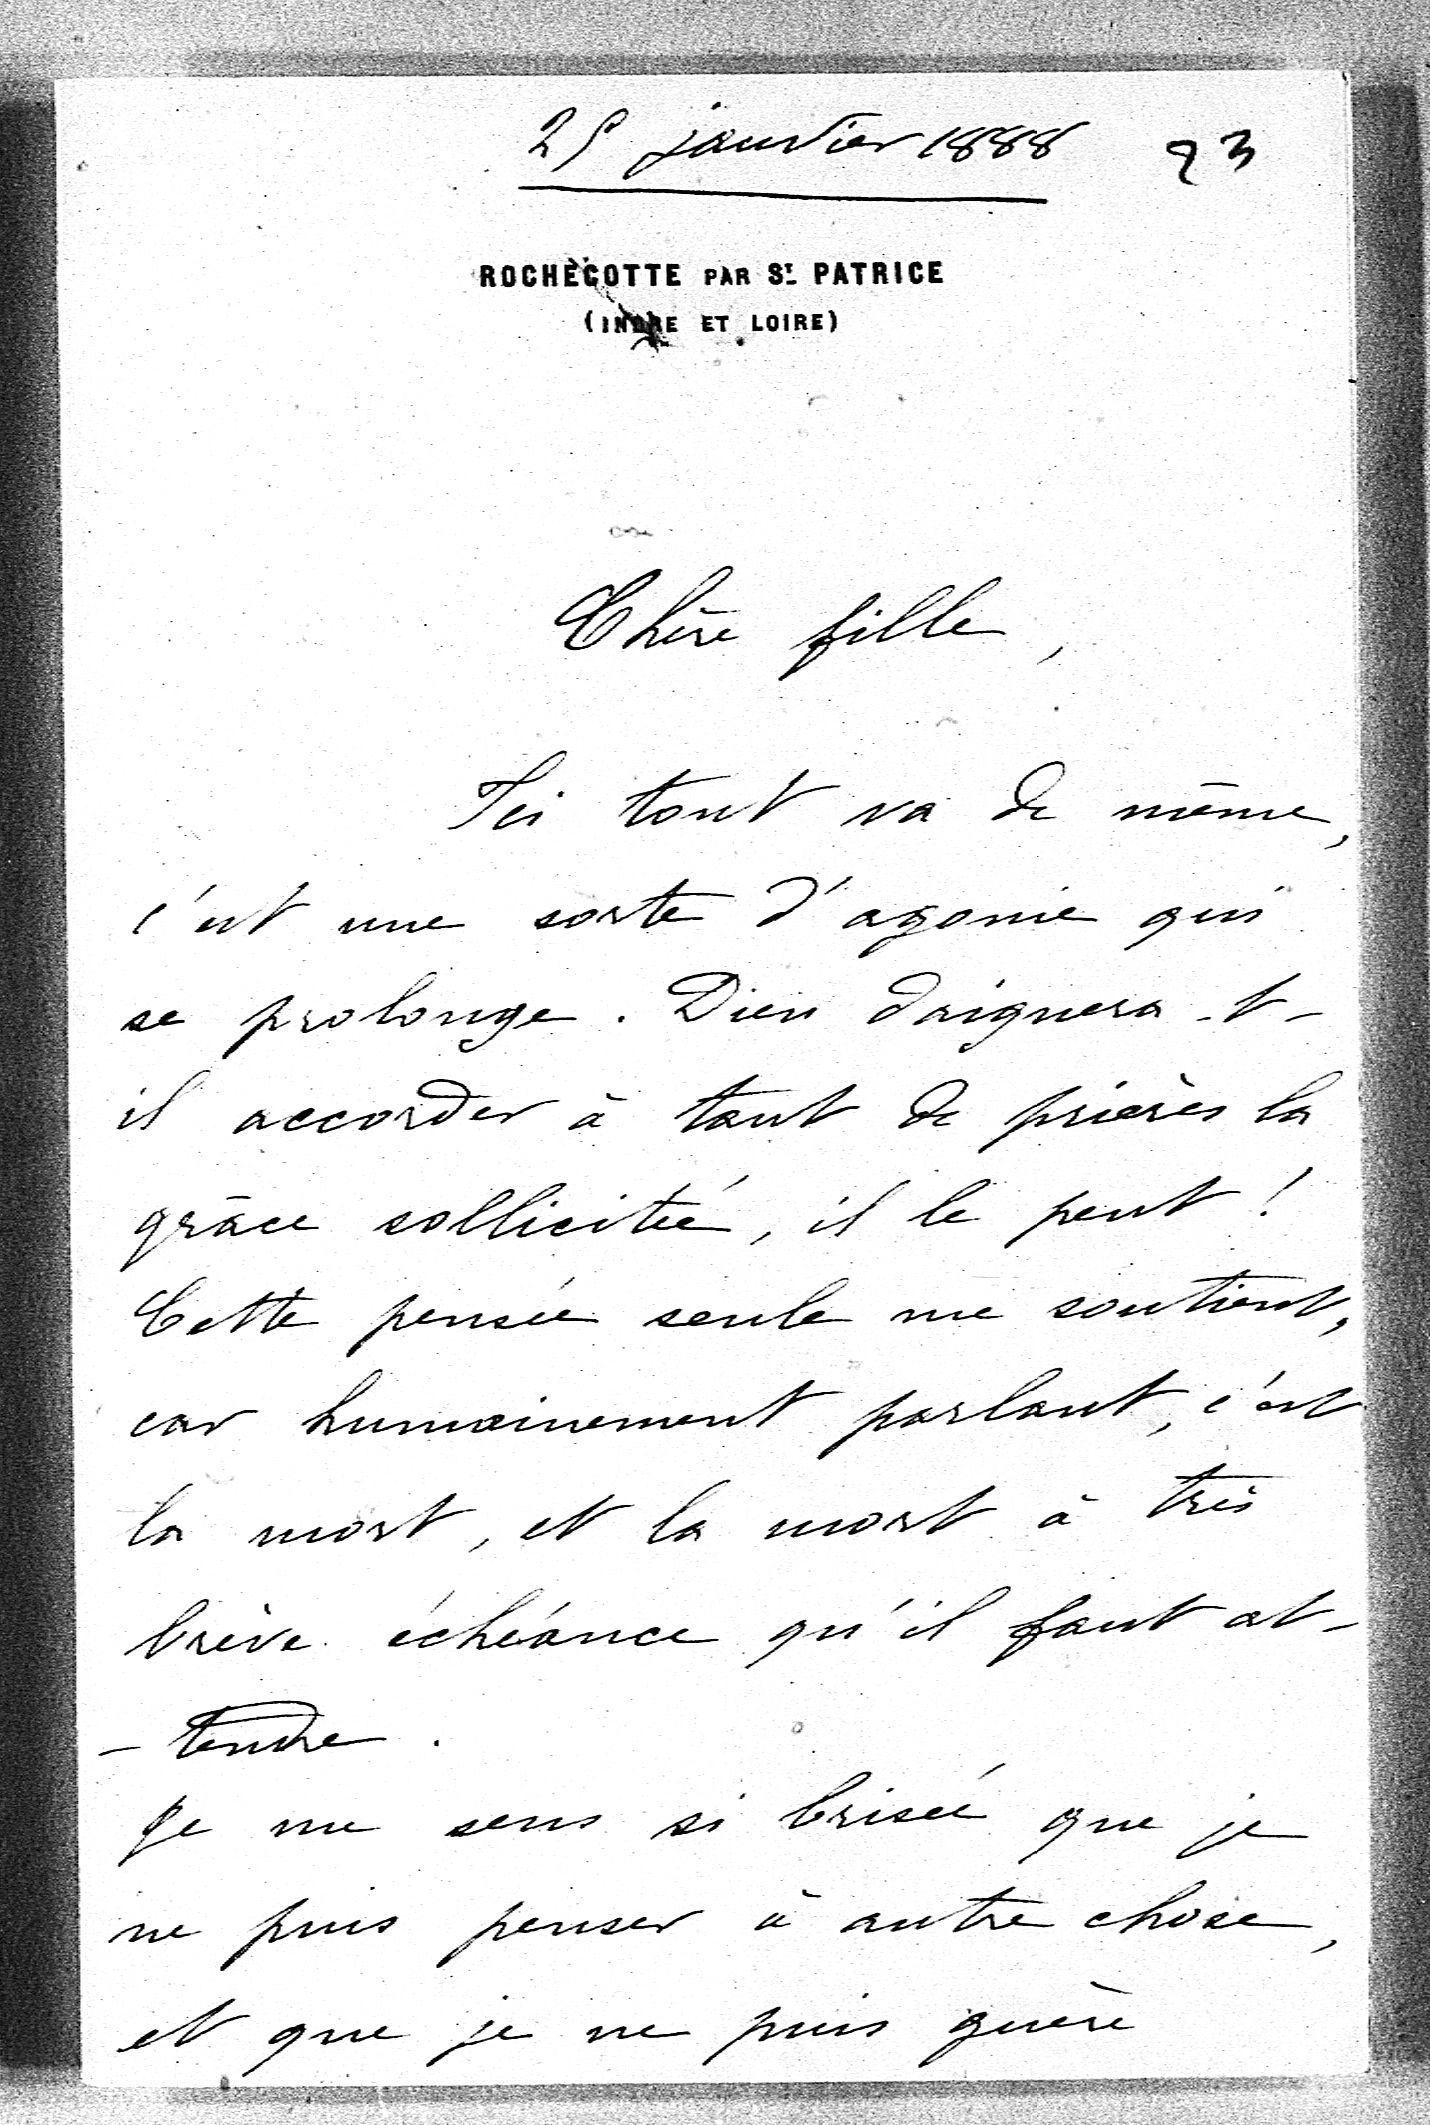 25 janvier 1888 23
ROCHECOTTE PAR ST PATRICE
(INDRE ET LOIRE)
Chère fille,
Ici tout va de même,
c'est une sorte d'agonie qui
se prolonge. Dieu daignera-t-
il accorder à tant de prières la
grâce sollicitée, il le peut!
Cette pensée seule me soutient,
car humainement parlant, c'est
la mort, et la mort à très
brève échéance qu'il faut at-
-tendre.
Je me sens si brisée que je
ne puis penser à autre chose,
et que je ne puis guère